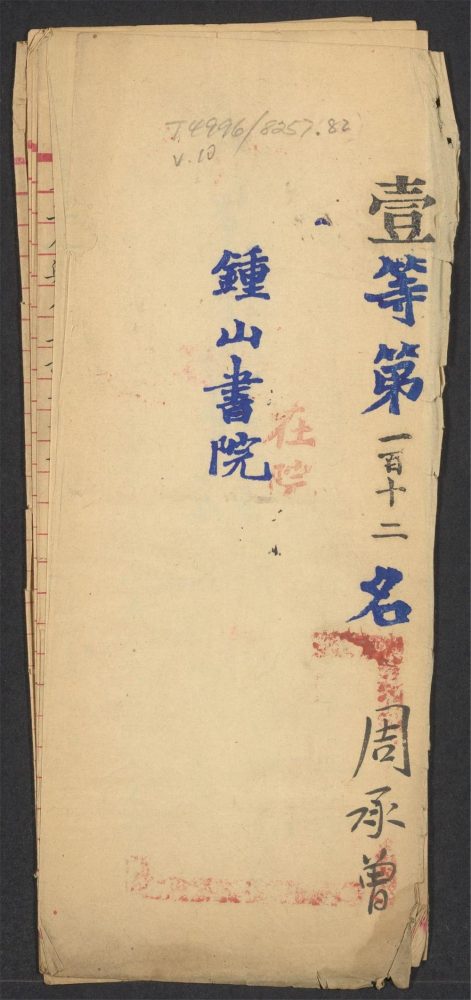 T4996/8257.82
v.10
壹等第一百十二名 周承曾
在院
鍾山書院